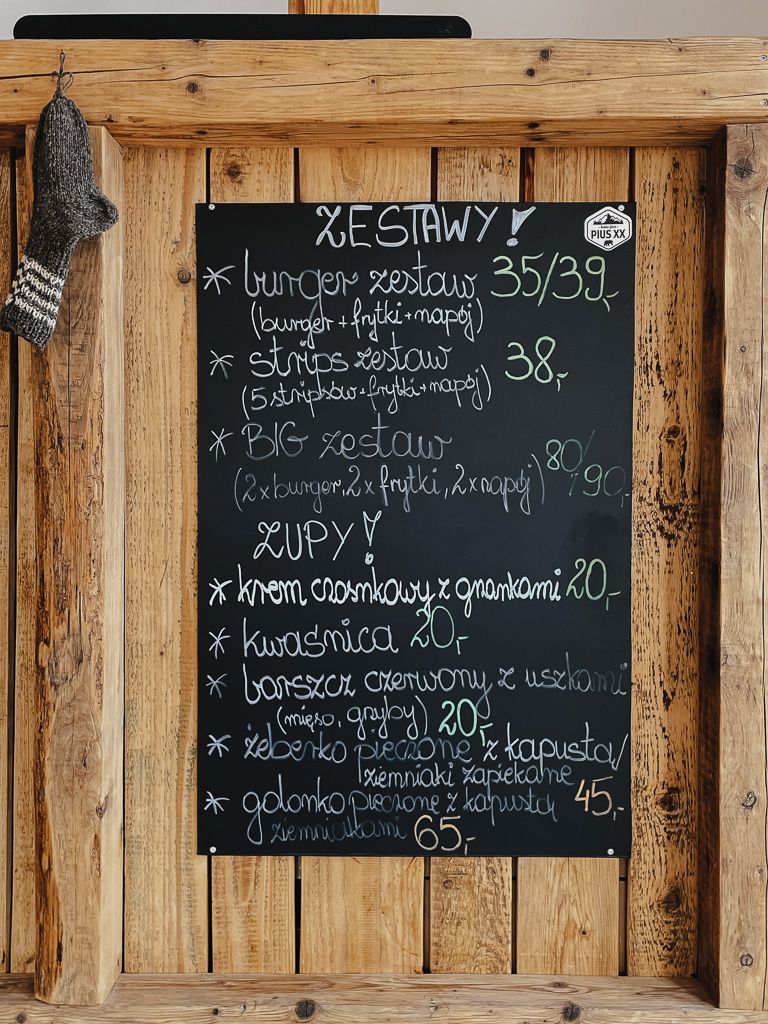 ZESTAWY!
PIUS XX
* burger zestaw 35/39,-
(burger + frytki + napój)
* strips zestaw 38,-
(5 stripsów + frytki + napój)
* BIG zestaw 80/90,-
(2x burger, 2x frytki, 2x napój)
ZUPY!
* krem czosnkowy z grzankami 20,-
* kwaśnica 20,-
* barszcz czerwony z uszkami
(mięso, grzyby) 20,-
* żeberko pieczone z kapustą/
ziemniaki zapiekane 45,-
* golonko pieczone z kapustą
ziemniakami 65,-